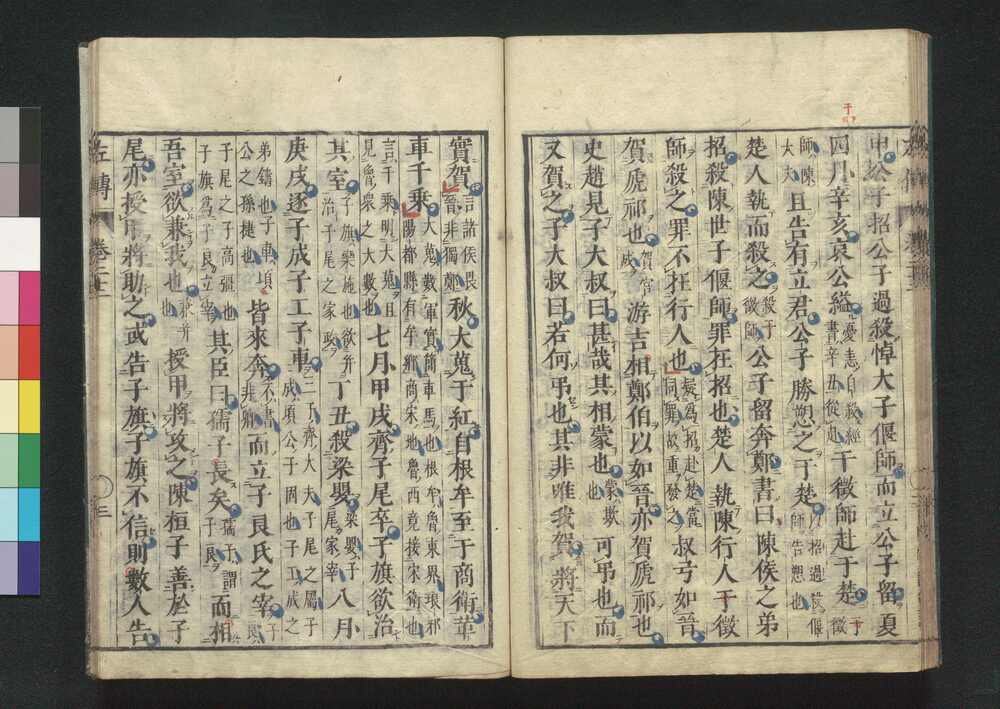 申公子招公子過殺悼大子偃師而立公子留夏
四月辛亥哀公縊憂恚自殺經書辛丑從赴于徵師赴于楚于徵
師陳大夫且告有立君公子勝愬之于楚以招過殺偃師告愬也
楚人執而殺之殺于徵師公子留奔鄭書曰陳侯之弟
招殺陳世子偃師罪在招也楚人執陳行人于徵
師殺之罪不在行人也疑爲招赴楚當同罪故重發之叔弓如晉
賀虒祁也賀宮成游吉相鄭伯以如晉亦賀虒祁也
史趙見子大叔曰甚哉其相蒙也蒙欺也可弔也而
又賀之子大叔曰若何弔也其非唯我賀將天下
實賀言諸侯畏晉非獨鄭秋大蒐于紅自根牟至于商衛革
車千乘大蒐數軍實簡車馬也根牟魯東界琅邪陽都縣有牟鄉商宋地魯西竟接宋衛也
言千乘明大蒐且見魯衆之大數也七月甲戌齊子尾卒子旗欲治
其室子旗欒施也欲并治子尾之家政丁丑殺梁嬰梁嬰子尾家宰八月
庚戌逐子成子工子車三子齊大夫子尾之屬子成頃公子固也子工成之
弟鑄也子車頃公之孫捷也皆來奔不書非卿而立子良氏之宰子良
子尾之子高彊也子旗爲子良立宰其臣曰孺子長矣孺子謂子良而相
吾室欲兼我也兼并也授甲將攻之陳桓子善於子
尾亦授甲將助之或告子旗子旗不信則數人告
左傳 卷二十二 三